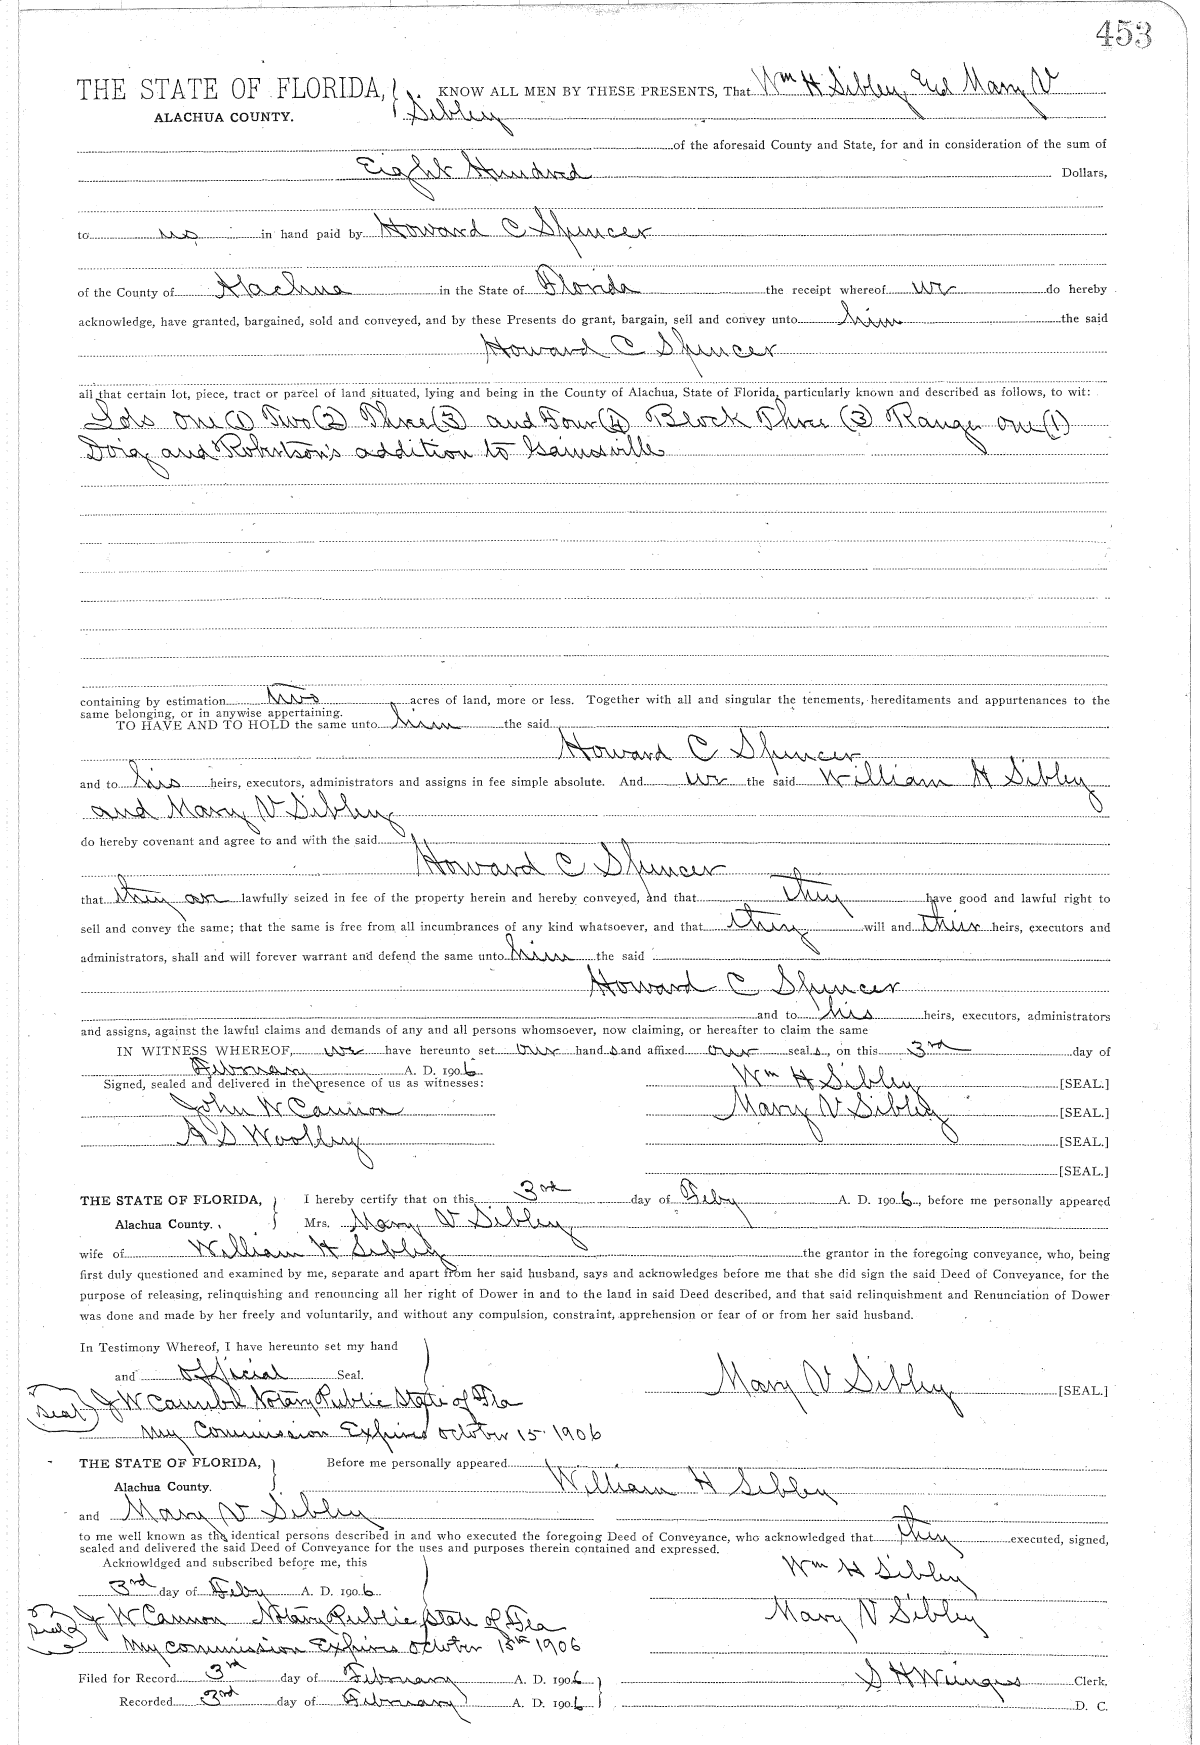 453
THE STATE OF FLORIDA, KNOW ALL MEN BY THESE PRESENTS, That Wm H Sibley, and Mary V
ALACHUA COUNTY. Sibley
of the aforesaid County and State, for and in consideration of the sum of
Eight Hundred Dollars,
to us in hand paid by Howard C Spencer
of the County of Alachua in the State of Florida the receipt whereof we do hereby
acknowledge, have granted, bargained, sold and conveyed, and by these Presents do grant, bargain, sell and convey unto him the said
Howard C Spencer
all that certain lot, piece, tract or parcel of land situated, lying and being in the County of Alachua, State of Florida, particularly known and described as follows, to wit:
Lots one (1) Two (2) Three (3) and Four (4) Block Three (3) Range one (1)
Doig and Robertson's addition to Gainsville
containing by estimation two acres of land, more or less. Together with all and singular the tenements, hereditaments and appurtenances to the
same belonging, or in anywise appertaining.
TO HAVE AND TO HOLD the same unto him the said
Howard C Spencer
and to his heirs, executors, administrators and assigns in fee simple absolute. And we the said William H Sibley
and Mary V Sibley
do hereby covenant and agree to and with the said
Howard C Spencer
that they are lawfully seized in fee of the property herein and hereby conveyed, and that they have good and lawful right to
sell and convey the same; that the same is free from all incumbrances of any kind whatsoever, and that they will and their heirs, executors and
administrators, shall and will forever warrant and defend the same unto him the said
Howard C Spencer
and to his heirs, executors, administrators
and assigns, against the lawful claims and demands of any and all persons whomsoever, now claiming, or hereafter to claim the same
IN WITNESS WHEREOF, we have hereunto set our hand s and affixed our seal s, on this 3rd day of
February A. D. 1906 Wm H Sibley [SEAL.]
Signed, sealed and delivered in the presence of us as witnesses:
John W Cannon Mary V Sibley [SEAL.]
A S Woolley [SEAL.]
[SEAL.]
THE STATE OF FLORIDA, I hereby certify that on this 3rd day of Feby A. D. 1906, before me personally appeared
Alachua County. Mrs. Mary V Sibley
wife of William H Sibley the grantor in the foregoing conveyance, who, being
first duly questioned and examined by me, separate and apart from her said husband, says and acknowledges before me that she did sign the said Deed of Conveyance, for the
purpose of releasing, relinquishing and renouncing all her right of Dower in and to the land in said Deed described, and that said relinquishment and Renunciation of Dower
was done and made by her freely and voluntarily, and without any compulsion, constraint, apprehension or fear of or from her said husband.
In Testimony Whereof, I have hereunto set my hand
and official Seal. Mary V Sibley [SEAL.]
Seal J W Notary Public State of Fla
My Commission Expires October 15 1906
THE STATE OF FLORIDA, Before me personally appeared William H Sibley
Alachua County.
and Mary V Sibley
to me well known as the identical persons described in and who executed the foregoing Deed of Conveyance, who acknowledged that they executed, signed,
sealed and delivered the said Deed of Conveyance for the uses and purposes therein contained and expressed.
Acknowldged and subscribed before me, this Wm H Sibley
3rd day of Feby A. D. 1906
Seal J W Cannon Notary Public State of Fla Mary V Sibley
My commission Expires October 15th 1906
Filed for Record 3rd day of February A. D. 1906 S H Wienges Clerk.
Recorded 3rd day of February A. D. 1906 D. C.